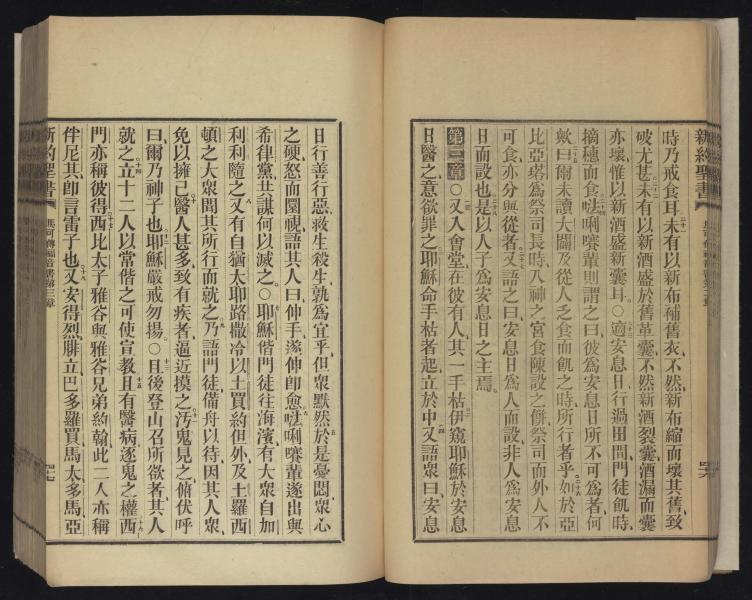 新約聖書
馬可傳福音書第二章
時乃戒食耳未有以新布補舊衣不然新布縮而壞其舊致
破尤甚未有以新酒盛於舊革囊不然新酒裂囊酒漏而囊
亦壞惟以新酒盛新囊耳○適安息日行過田間門徒飢時
摘穗而食㖿唎㘔輩則謂之曰彼爲安息日所不可爲者何
歟曰爾未讀大闢及從人乏食而飢之時所行者乎如於亞
比亞塔爲祭司長時入神之宮食陳設之餅祭司而外人不
可食亦分與從者又語之曰安息日爲人而設非人爲安息
日而設也是以人子爲安息日之主焉
第三章○又入會堂在彼有人其一手枯伊窺耶穌於安息
日醫之意欲罪之耶穌命手枯者起立於中又語衆曰安息
日行善行惡救生殺生孰爲宜乎但衆默然於是憂悶衆心
之硬怒而圜視語其人曰伸手遂伸卽愈㖿唎㘔輩遂出與
希律黨共謀何以滅之○耶穌偕門徒往海濱有大衆自加
利利隨之又有自猶太耶路撒冷以土買約但外及土羅西
頓之大衆聞其所行而就之乃語門徒備舟以待因其人衆
免以擁己醫人甚多致有疾者逼近摸之汚鬼見之俯伏呼
曰爾乃神子也耶穌嚴戒勿揚○且後登山召所欲者其人
就之立十二人以常偕之可使宣教且有醫病逐鬼之權西
門亦稱彼得西比太子雅各與雅各兄弟約翰此二人亦稱
伴尼其卽言雷子也又安得烈腓立巴多羅買馬太多馬亞
新約聖書
馬可傳福音書第三章